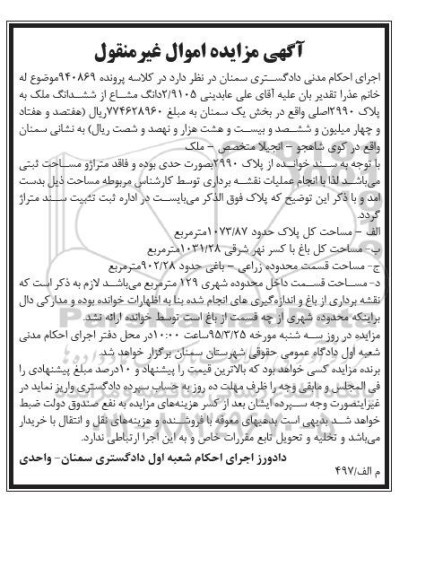 آگهی مزایده اموال غیرمنقول
اجرای احکام مدنی دادگستری سمنان در نظر دارد در کلاسه پرونده ۹۴۰۸۶۹موضوع له
خانم عذرا تقدیر بان علیه آقای علی عابدینی ۲/۹۱۰۵دانگ مشاع از ششدانگ ملک به
پلاک ۲۹۹۰اصلی واقع در بخش یک سمنان به مبلغ ۷۷۴۶۲۸۹۶۰ریال (هفتصد و هفتاد
و چهار میلیون و ششصد و بیست و هشت هزار و نهصد و شصت ریال) به نشانی سمنان
واقع در کوی شاهجو – انجیلا متخصص – ملک
با توجه به سند خوانده از پلاک ۲۹۹۰بصورت حدی بوده و فاقد متراژو مساحت ثبتی
می‌باشد لذا با انجام عملیات نقشه برداری توسط کارشناس مربوطه مساحت ذیل بدست
امد و با ذکر این توضیح که پلاک فوق الذکر می‌بایست در اداره ثبت تثبیت سند متراژ
گردد.
الف – مساحت کل پلاک حدود ۱۰۷۳/۸۷مترمربع
ب– مساحت کل باغ با کسر نهر شرقی ۱۰۳۱/۲۸مترمربع
ج– مساحت قسمت محدوده زراعی – باغی حدود ۹۰۲/۲۸مترمربع
د– مساحت قسمت داخل محدوده شهری ۱۲۹ مترمربع می‌باشد لازم به ذکر است که
نقشه برداری از باغ و اندازه‌گیری های انجام شده بنا به اظهارات خوانده بوده و مدارکی دال
براینکه محدوده شهری از چه قسمت از باغ است توسط خوانده ارائه نشد.
مزایده در روز سه شنبه مورخه ۹۵/۳/۲۵ساعت ۱۰:۰۰در محل دفتر اجرای احکام مدنی
شعبه اول دادگاه عمومی حقوقی شهرستان سمنان برگزار خواهد شد.
برنده مزایده کسی خواهد بود که بالاترین قیمت را پیشنهاد و ۱۰درصد مبلغ پیشنهادی را
فی المجلس و مابقی وجه را ظرف مهلت ده روز به حساب سپرده دادگستری واریز نماید در
غیراینصورت وجه سپرده ایشان بعد از کسر هزینه‌های مزایده به نفع صندوق دولت ضبط
خواهد شد بدیهی است بدهیهای معوقه با فروشنده و هزینه‌های نقل و انتقال با خریدار
می‌باشد و تخلیه و تحویل تابع مقررات خاص و به این اجرا ارتباطی ندارد.
دادورز اجرای احکام شعبه اول دادگستری سمنان– واحدی
م الف/۴۹۷